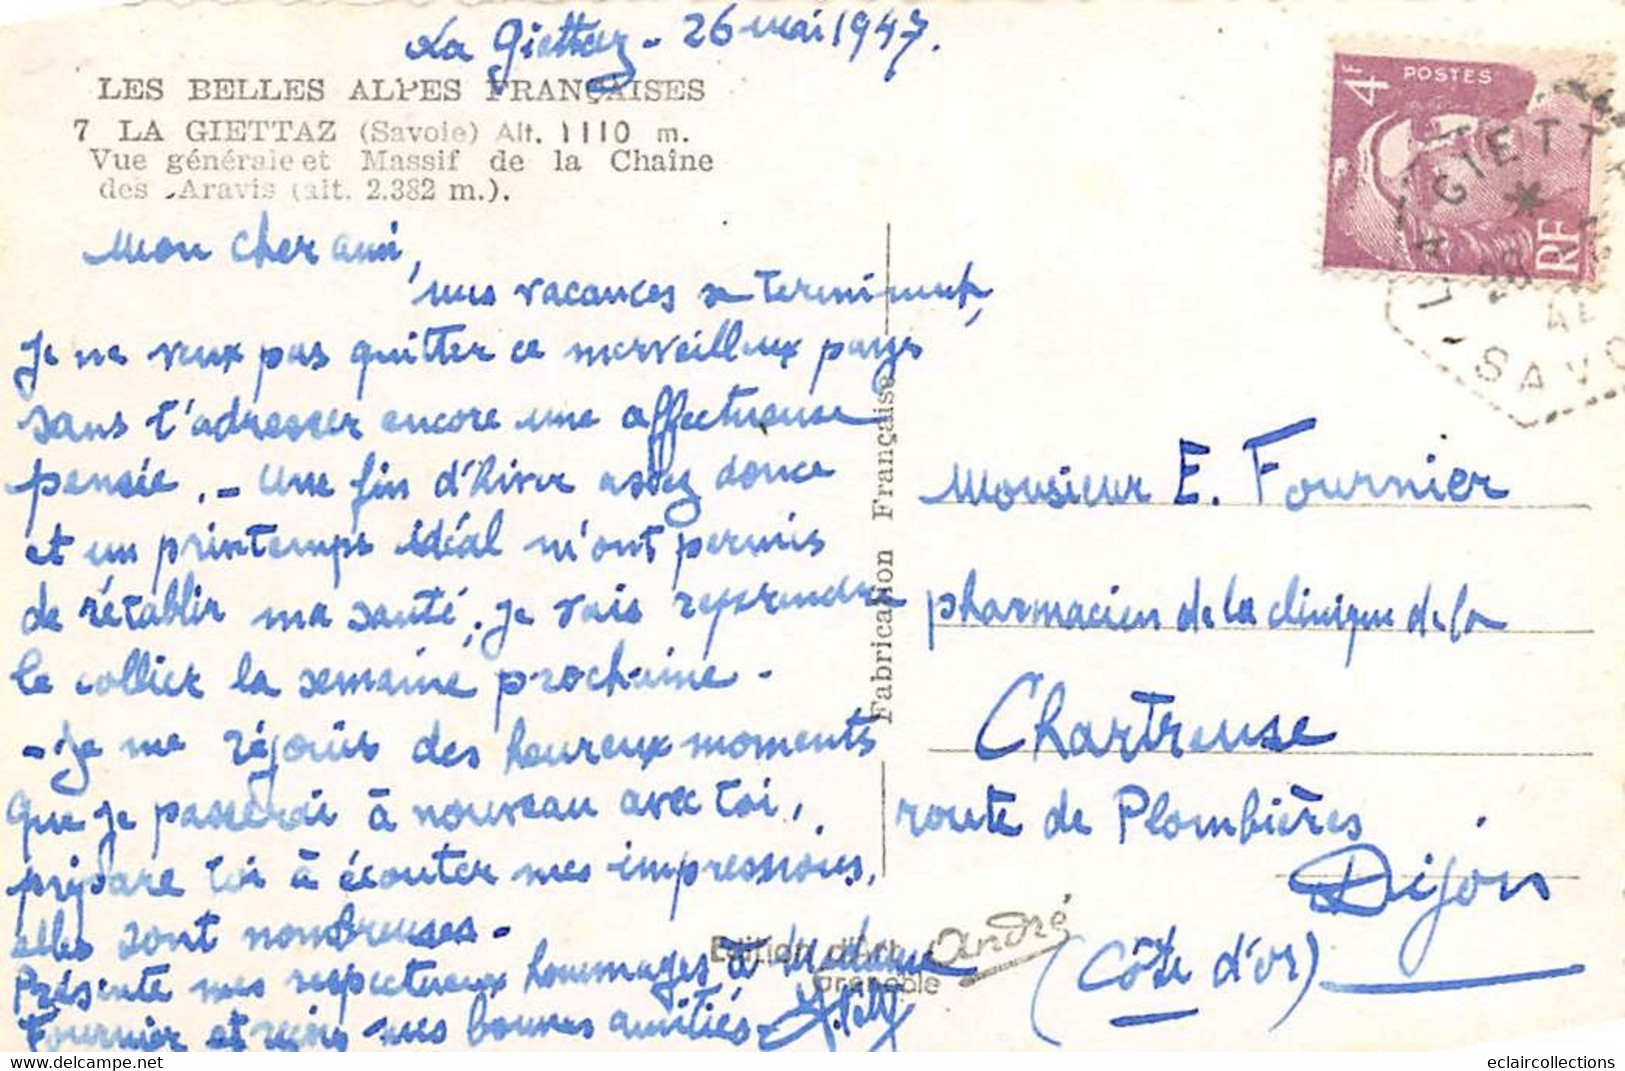 La Giettaz - 26 mai 1947.
LES BELLES ALPES FRANÇAISES
7 LA GIETTAZ (Savoie) Alt. 1110 m.
Vue générale et Massif de la Chaîne
des Aravis (alt. 2.382 m.).
Mon cher ami,
mes vacances se terminent,
Je ne veux pas quitter ce merveilleux pays
sans t'adresser encore une affectueuse
pensée. - Une fin d'hiver assez douce
et un printemps idéal m'ont permis
de rétablir ma santé, je vais reprendre
le collier la semaine prochaine -
- Je me réjouis des heureux moments
que je passerai à nouveau avec toi,
prépare toi à écouter mes impressions,
elles sont nombreuses -
Présente mes respectueux hommages à Madame
Fournier et reçois mes bonnes amitiés
Fabrication Française
Edition d'Art André
Grenoble
4F POSTES
RF
LA GIETTAZ
SAVO
Monsieur E. Fournier
pharmacien de la clinique de la
Chartreuse
route de Plombières
Dijon
(Côte d'or)
eclaircollections